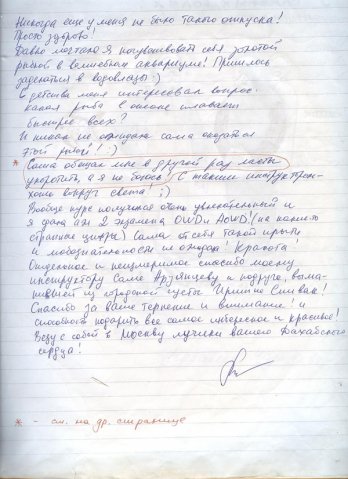 Никогда еще у меня не было такого отпуска!
Просто здорово!
Давно мечтала я почувствовать себя золотой
рыбкой в волшебном аквариуме! Пришлось
заделаться в водолазы :)
С детства меня интересовал вопрос
какая рыба в океане плавает
быстрее всех?
И никак не ожидала сама оказаться
этой рыбой! :)
* Саша обещал мне в другой раз ласты
укоротить, а я не боюсь! С таким инструктором
хоть вокруг света! ;)
Вообще курс получился очень увлекательный и
я сдала аж 2 экзамена OWD и AOWD! (на
странные цифры) Сама от себя такой прыти
и любознательности не ожидала! Красота!
Отдельное и неизмеримое спасибо моему
инструктору Саше Арзянцеву и подруге,
из городской суеты Ирише Спивак!
Спасибо за ваше терпение и внимание! и
способность подарить все самое интересное и красивое!
Везу с собой в Москву лучики вашего Дахабского
сердца!
* - см. на др. странице